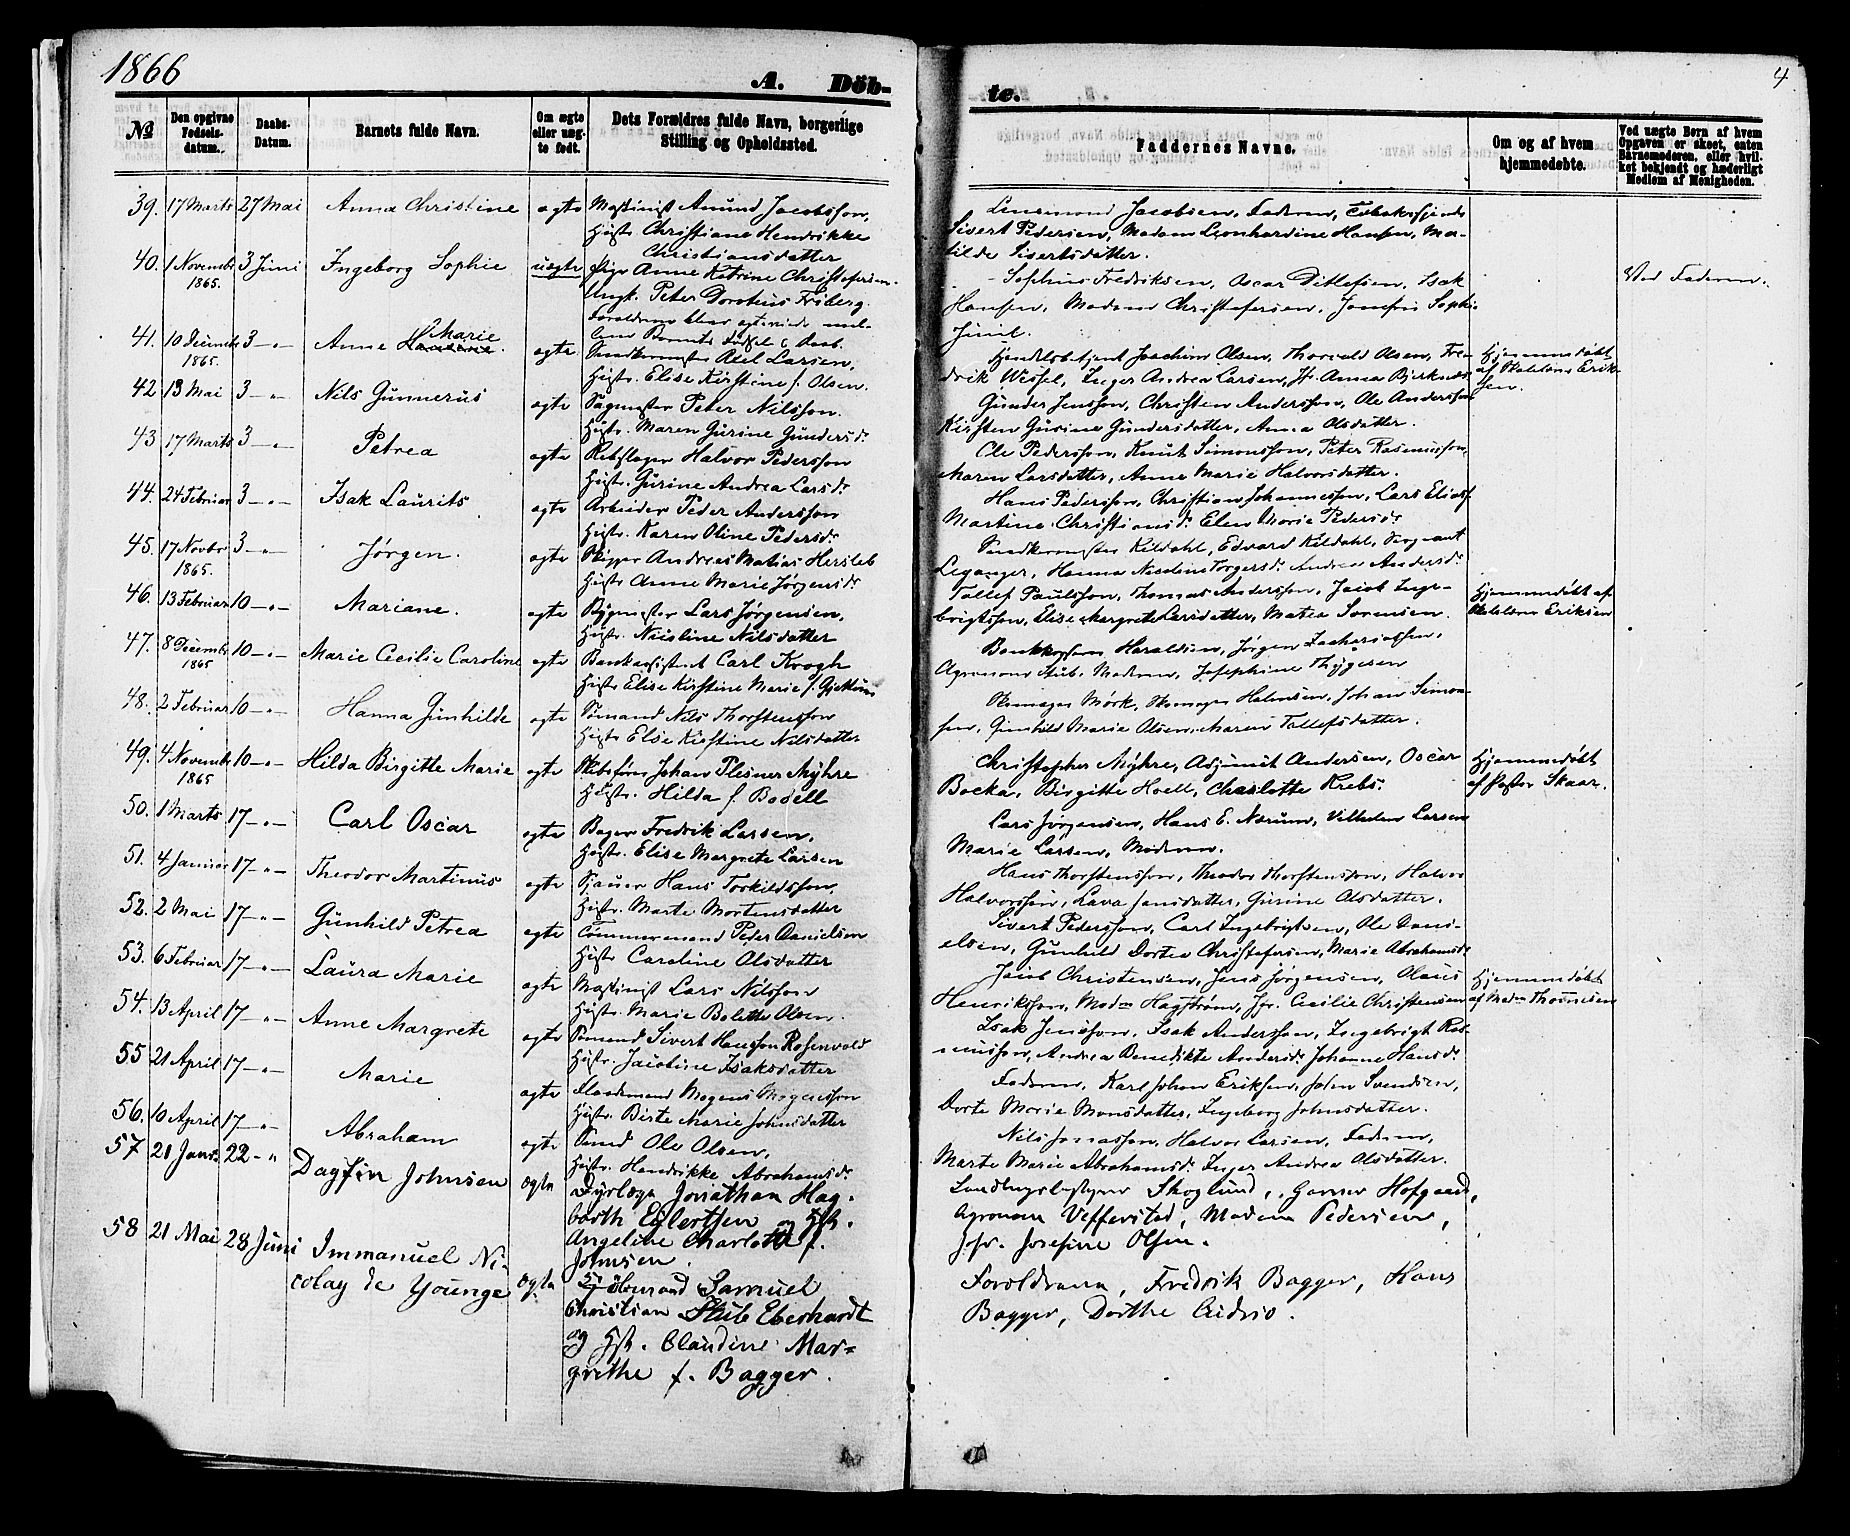 1866
A. Döb-
te.
4
No
Den opgivne Fødsels-datum.
Daabs-Datum.
Barnets fulde Navn.
Om ægte eller uægte født.
Dets Forældres fulde Navn, borgerlige Stilling og Opholdssted.
Faddernes Navne.
Om og af hvem hjemmedøbte.
Ved uægte Børn af hvem Opgaven er skeet, enten Barnemoderen, eller hvilket bekjendt og hæderligt Medlem af Menigheden.
39. 17 Marts 27 Mai Anna Christine ægte Maskinist Amund Jacobsson,
Hustr. Christiane Hendrikke
Christiansdatter
Jacobsen, Faderen,
Sivert Pedersen, Madam Leonhardine Hansen, Ma-
tilde Sivertsdatter.
40. 1 Novembr 1865. 3 Juni Ingeborg Sophie uægte Pige Anne Katrine Christofersen.
Ungk. Peter Dorotius Friberg.
Forældrene blev ægteviede mel-
lem Barnets Fødsel & Daab.
Sophus Fredriksen, Oscar Ditlefsen, Isak
Hansen, Madam Christofersen, Josefin Sophi
Juul.
Ved Faderen.
41. 10 Decembr 1865. 3 -"- Anne Marie ægte Sundkarmester Axel Larsen,
Hustr. Elise Kirstine f. Olsen.
Joachim Olsen, Thorvald Olsen, Fre-
drik Wessel, Inger Andrea Larsen, Jfr. Anna Bjerknes
Hjemmedøbt
af Erik-
sen.
42 13 Mai 3 -"- Nils Gunnerus ægte Sagmester Peter Nilsson.
Hustr. Maren Gurine Gundersd.
Gunder Jensson, Christen Andersson, Ole Andersson
Kirsten Gurine Gundersdatter, Anna Olsdatter.
43 17 Marts 3 -"- Petrea ægte Rebslager Halvor Pedersson
Hustr. Gurine Andrea Larsd.
Ole Pedersson, Knut Simonsson, Peter Rasmusson,
Maren Larsdatter, Anne Marie Halvorsdatter.
44. 24 Februar 3 -"- Isak Laurits ægte Arbeider Peder Andersson
Hustr. Karen Oline Pedersd.
Hans Pedersson, Christian Johannesson, Lars Eliass.
Martine Christiansd. Elen Marie Pedersd.
45. 17 Novbr 1865. 3 -"- Jørgen. ægte Skipper Andreas Matias Hersleb
Hustr Anne Marie Jørgensd.
Sundkarmester Kildahl, Edvard Kildahl, Sergeant
Leganger, Hanna Nicoline Torgersd. Andrea Andersd.
46. 13 Februar 10 -"- Mariane. ægte Bygmester Lars Jørgensen,
Hustr. Nicoline Nilsdatter
Tollef Paulsson, Thomas Andersson, Jacob Inge-
brigtsson, Elise Margrete Larsdatter, Matea Sørensen.
Hjemmedøbt af
Eriksen
47. 8 Decembr 1865 10 -"- Marie Cecilie Caroline ægte Bankassistent Carl Krogh
Hustr Elise Kirstine Marie f.
Haraldsen, Jørgen Zachariassen,
Agronom Stub, Moderen, Josephine Thygesen
48. 2 Februar 10 -"- Hanna Gunhilde ægte Sømand Nils Thorstensson
Hustr Else Kirstine Nilsdatter
Skomager Mørk, Skomager Halvorsen, Johan Simon-
sen, Gunhild Marie Olsen, Maren Tollefsdatter.
49. 4 Novembr 1865 10 -"- Hilda Birgitte Marie ægte Skibsfører Johan Plesner Myhre
Hustr. Hilda f. Bodell
Christopher Myhre, Adjunct Andersen, Oscar
Bocka, Birgitte Hoell, Charlotte Krebs.
Hjemmedøbt
af Pastor Skaar.
50. 1 Marts 17 -"- Carl Oscar ægte Bager Fredrik Larsen,
Hustr. Elise Margrete Larsen
Lars Jørgensen, Hans E. Nærum, Vilhelm Larsen
Marie Larsen, Moderen.
51. 4 Januar 17 -"- Theodor Martinus ægte Sjauer Hans Torkildsson,
Hustr. Marte Mortensdatter
Hans Thorstensson, Theodor Thorstensson, Halvor
Halvorsson, Lava Jensdatter, Gurine Olsdatter.
52. 2 Mai 17 -"- Gunhild Petrea ægte Tømmermand Peder Danielsen
Hustr Caroline Olsdatter
Sivert Pedersson, Carl Ingebrigtsen, Ole Dani-
elsen, Gunhild Dorte Christofersen, Marie Abrahamsd.
53. 6 Februar 17 -"- Laura Marie ægte Maskinist Lars Nilsson
Hustr. Marie Bolette Olsen.
Jacob Christensen, Jens Jørgensen, Olaus
Henriksson, Madm Hagstrøm, Jfr. Cecilie Christensen
Hjemmedøbt
af Madm Thomesen
54. 13 April 17 -"- Anne Margrete ægte Sømand Sivert Hansson Rosenvold
Hustr. Jacobine Isaksdatter
Isak Jensson, Isak Andersson, Ingebrigt Ras-
musson, Andrea Benedikte Andersd. Johanne Hansd.
55 21 April 17 -"- Marie ægte Mogens Mogensson
Hustr. Birte Marie Johnsdatter
Faderen, Karl Johan Eriksen, John Svendsen,
Dorte Marie Monsdatter, Ingeborg Johnsdatter.
56. 10 April 17 -"- Abraham ægte Smed Ole Olsen,
Hustr. Hendrikke Abrahamsd.
Nils Jonasson, Halvor Larsen, Faderen,
Marte Marie Abrahamsd. Inger Andrea Olsdatter.
57 21 Janr. 22 -" Dagfin Johnsen ægte Dyrlæge Jonathan Hag-
barth Eilertsen og Hst.
Angeline Charlotte f.
Johnsen.
Skoglund, Hofgaard,
Agronom Veffenstad, Madam Pedersen,
Jfr. Josefine Olsen.
58 21 Mai 28 Juni Immanuel Ni-
colay de Younge ægte Sømand Samuel
Christian Stub Eberhardt
og Hst. Claudine Mar-
grethe f. Bagger.
Forældrene, Fredrik Bagger, Hans
Bagger, Dorthe